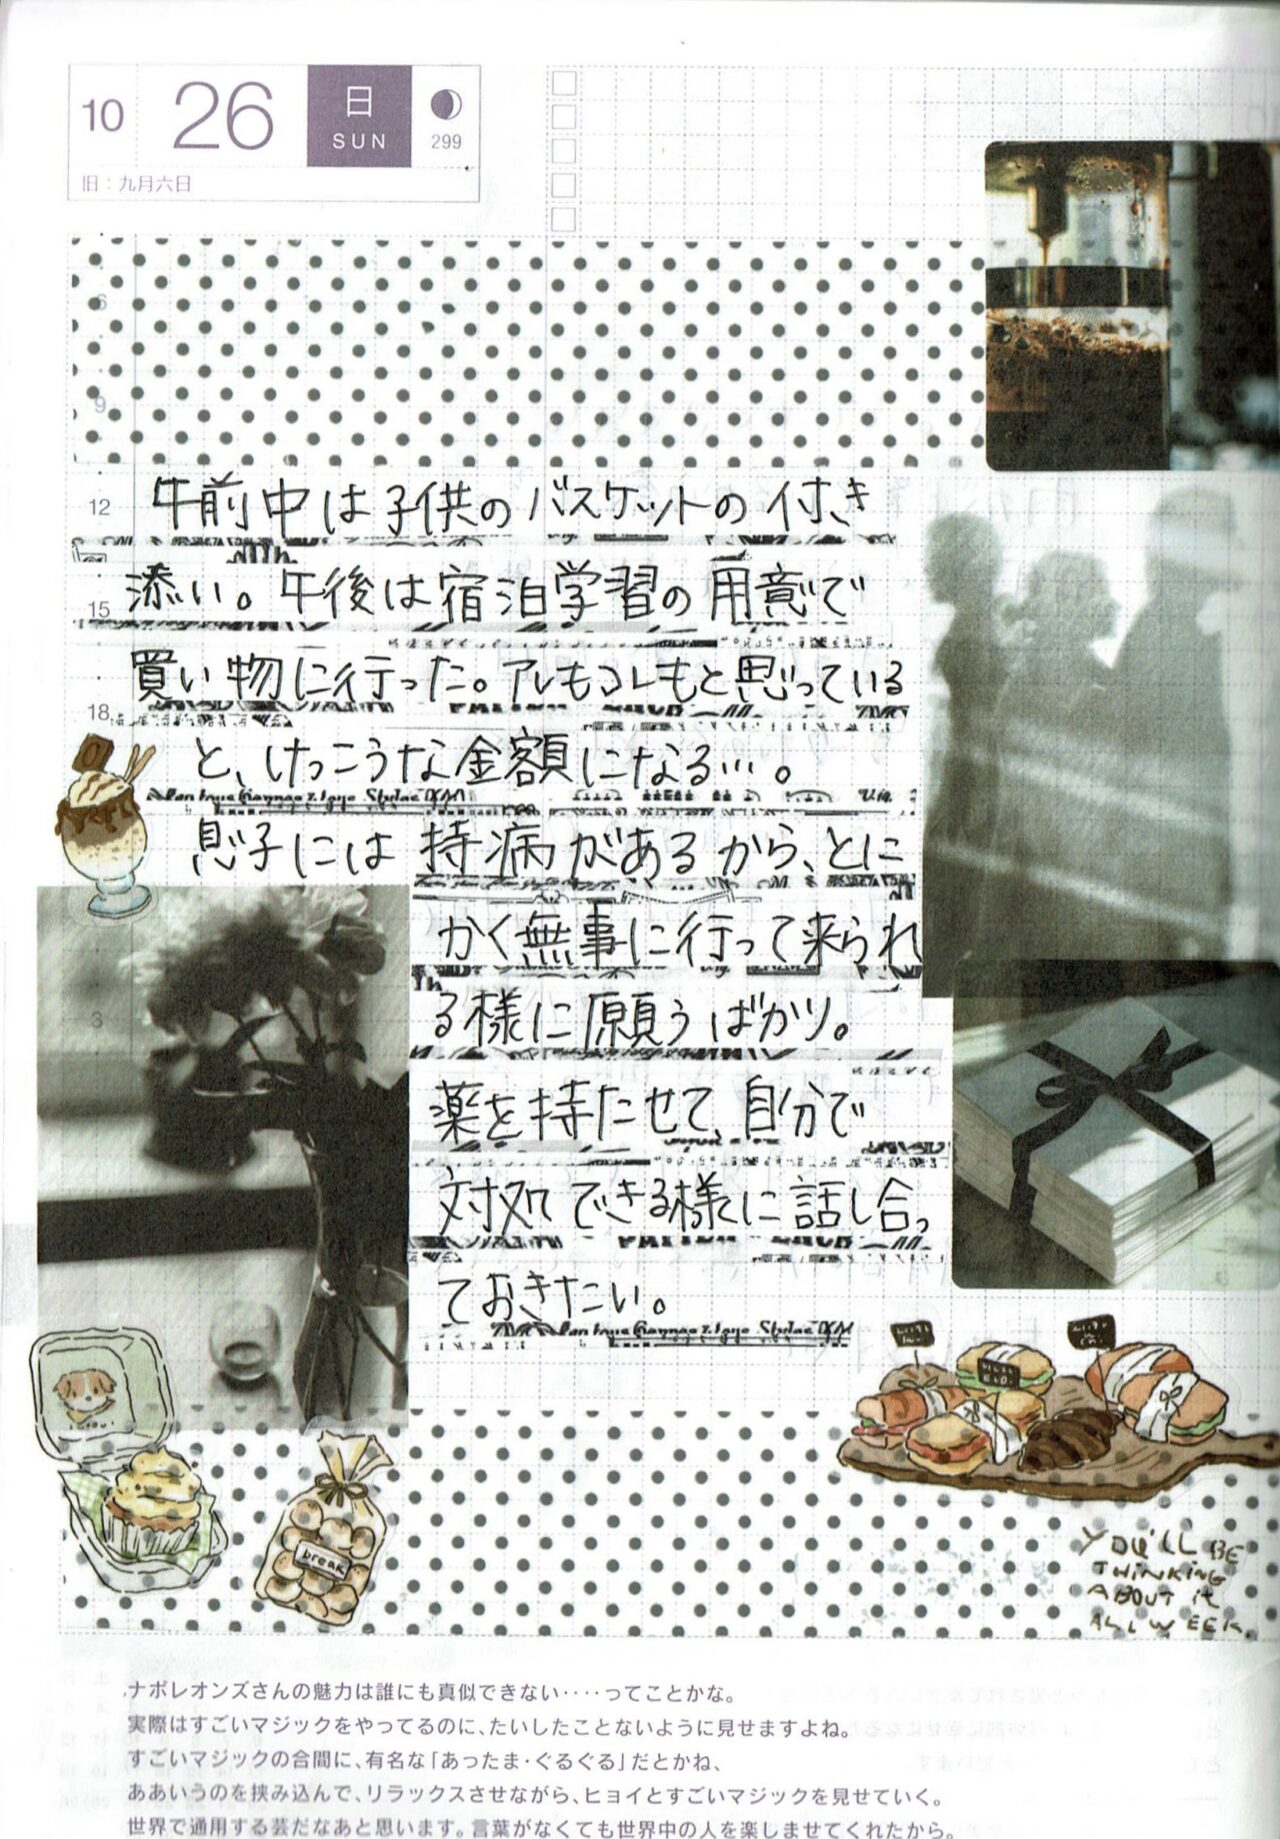 10
26
日
SUN
299
旧：九月六日
6
9
12
午前中は子供のバスケットの付き
添い。午後は宿泊学習の用意で
15
買い物に行った。アレもコレもと思っている
18
と、けっこうな金額になる…。
息子には持病があるから、とに
かく無事に行って来られ
る様に願うばかり。
3
薬を持たせて、自分で
対処できる様に話し合っ
ておきたい。
break
YOU'LL BE
THINKING
ABOUT it
ALL WEEK.
ナポレオンズさんの魅力は誰にも真似できない‥‥ってことかな。
実際はすごいマジックをやってるのに、たいしたことないように見せますよね。
すごいマジックの合間に、有名な「あったま・ぐるぐる」だとかね、
ああいうのを挟み込んで、リラックスさせながら、ヒョイとすごいマジックを見せていく。
世界で通用する芸だなあと思います。言葉がなくても世界中の人を楽しませてくれたから。